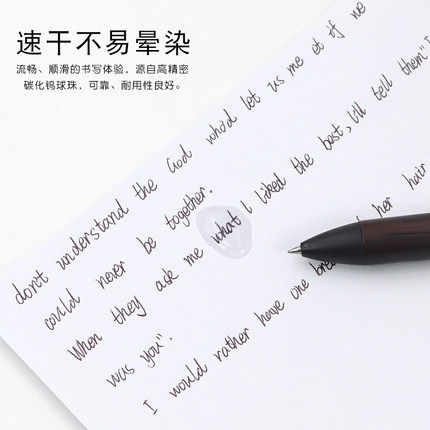 速干不易晕染
流畅、顺滑的书写体验，源自高精密
碳化钨球珠，可靠、耐用性良好。
don't understand the God who'd let us me et if we
could never be together.
When they ask me what I liked the best, I'll tell them"I
was you".
I would rather have one of her hair